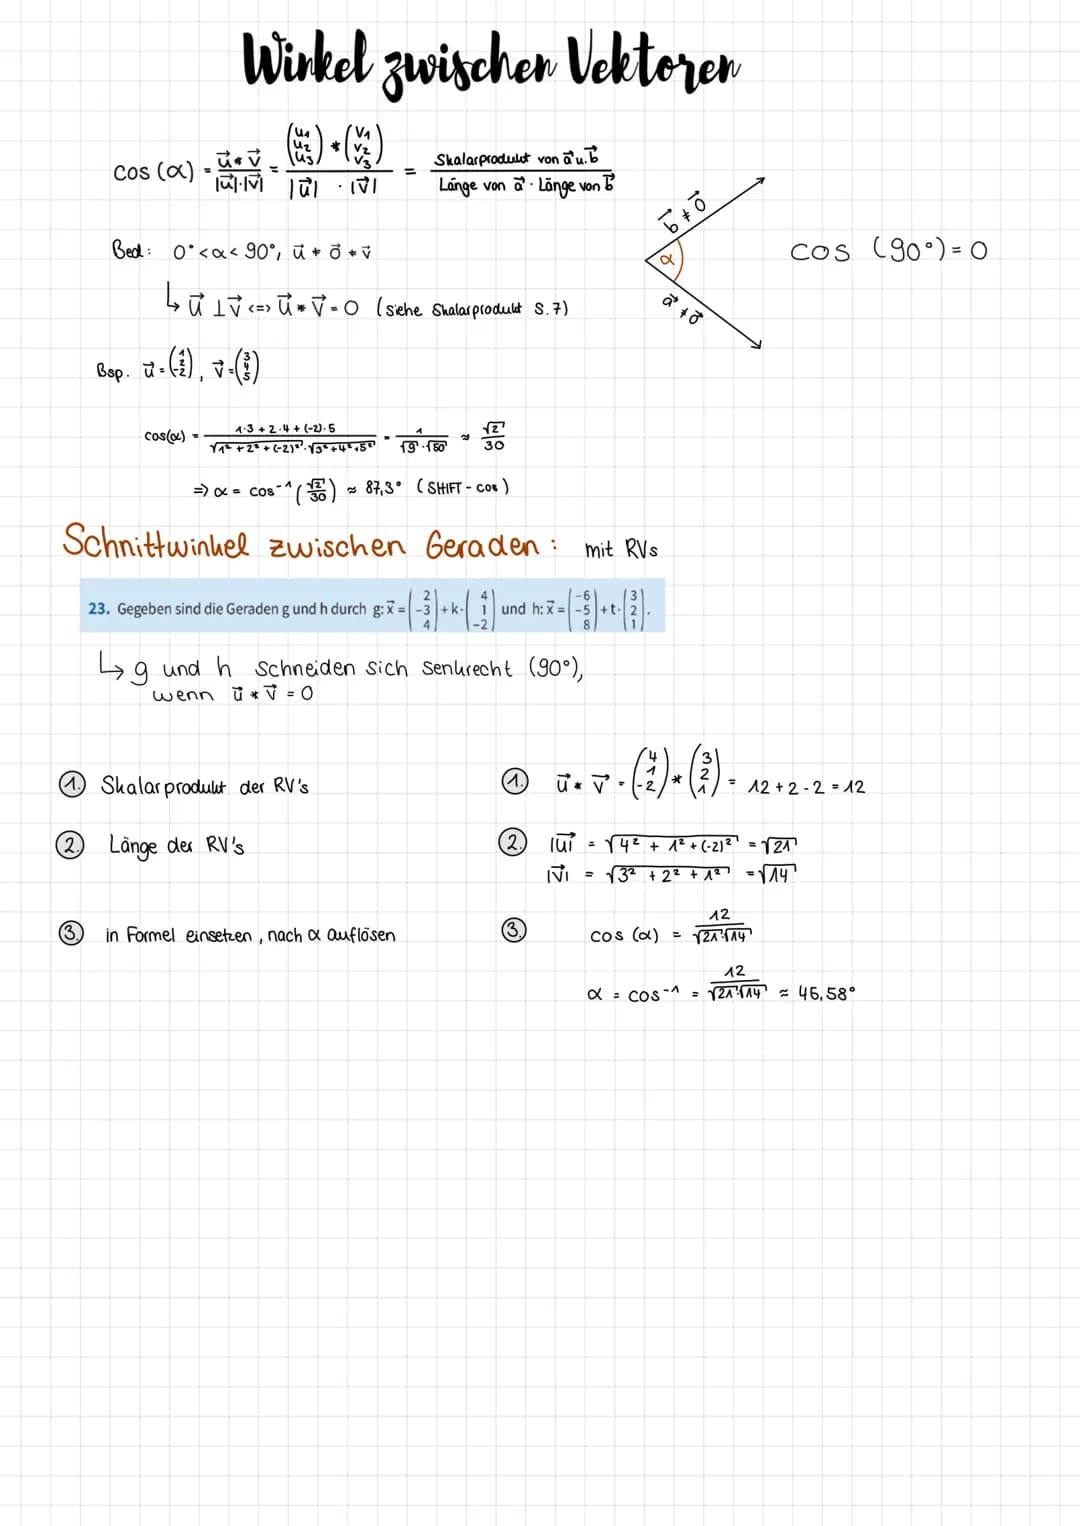 Winkel zwischen Vektoren
cos (α) = u⃗ * v⃗ / |u⃗|·|v⃗| = (u1 u2 u3) * (v1 v2 v3) / |u⃗| · |v⃗| = Skalarprodukt von a⃗ u. b⃗ / Länge von a⃗ · Länge von b⃗
b⃗ ≠ 0⃗
α
a⃗ ≠ 0⃗
cos (90°) = 0
Bed: 0° < α < 90°, u⃗ ≠ o⃗ ≠ v⃗
↳ u⃗ ⊥ v⃗ <=> u⃗ * v⃗ = 0 (siehe Skalarprodukt S. 7)
Bsp. u⃗ = (1 2 -2), v⃗ = (3 4 5)
cos(α) = 1·3 + 2·4 + (-2)·5 / √1² + 2² + (-2)² · √3² + 4² + 5² = 1 / √9 · √50 ≈ √2 / 30
=> α = cos⁻¹ (√2 / 30) ≈ 87,3° (SHIFT - cos)
Schnittwinkel zwischen Geraden: mit RVs
23. Gegeben sind die Geraden g und h durch g: x⃗ = (2 -3 4) + k· (4 1 -2) und h: x⃗ = (-6 -5 8) + t· (3 2 1).
↳ g und h schneiden sich senkrecht (90°),
wenn u⃗ * v⃗ = 0
1. Skalarprodukt der RV's
2. Länge der RV's
3. in Formel einsetzen, nach α auflösen
1. u⃗ * v⃗ = (4 1 -2) * (3 2 1) = 12 + 2 - 2 = 12
2. |u⃗| = √4² + 1² + (-2)² = √21
|v⃗| = √3² + 2² + 1² = √14
3. cos (α) = 12 / √21 · √14
α = cos⁻¹ = 12 / √21 · √14 ≈ 45,58°